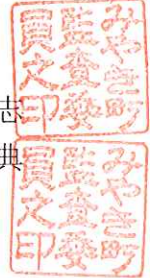 志
みやき町
監査委
員之印
典
みやき町
監査委
員之印